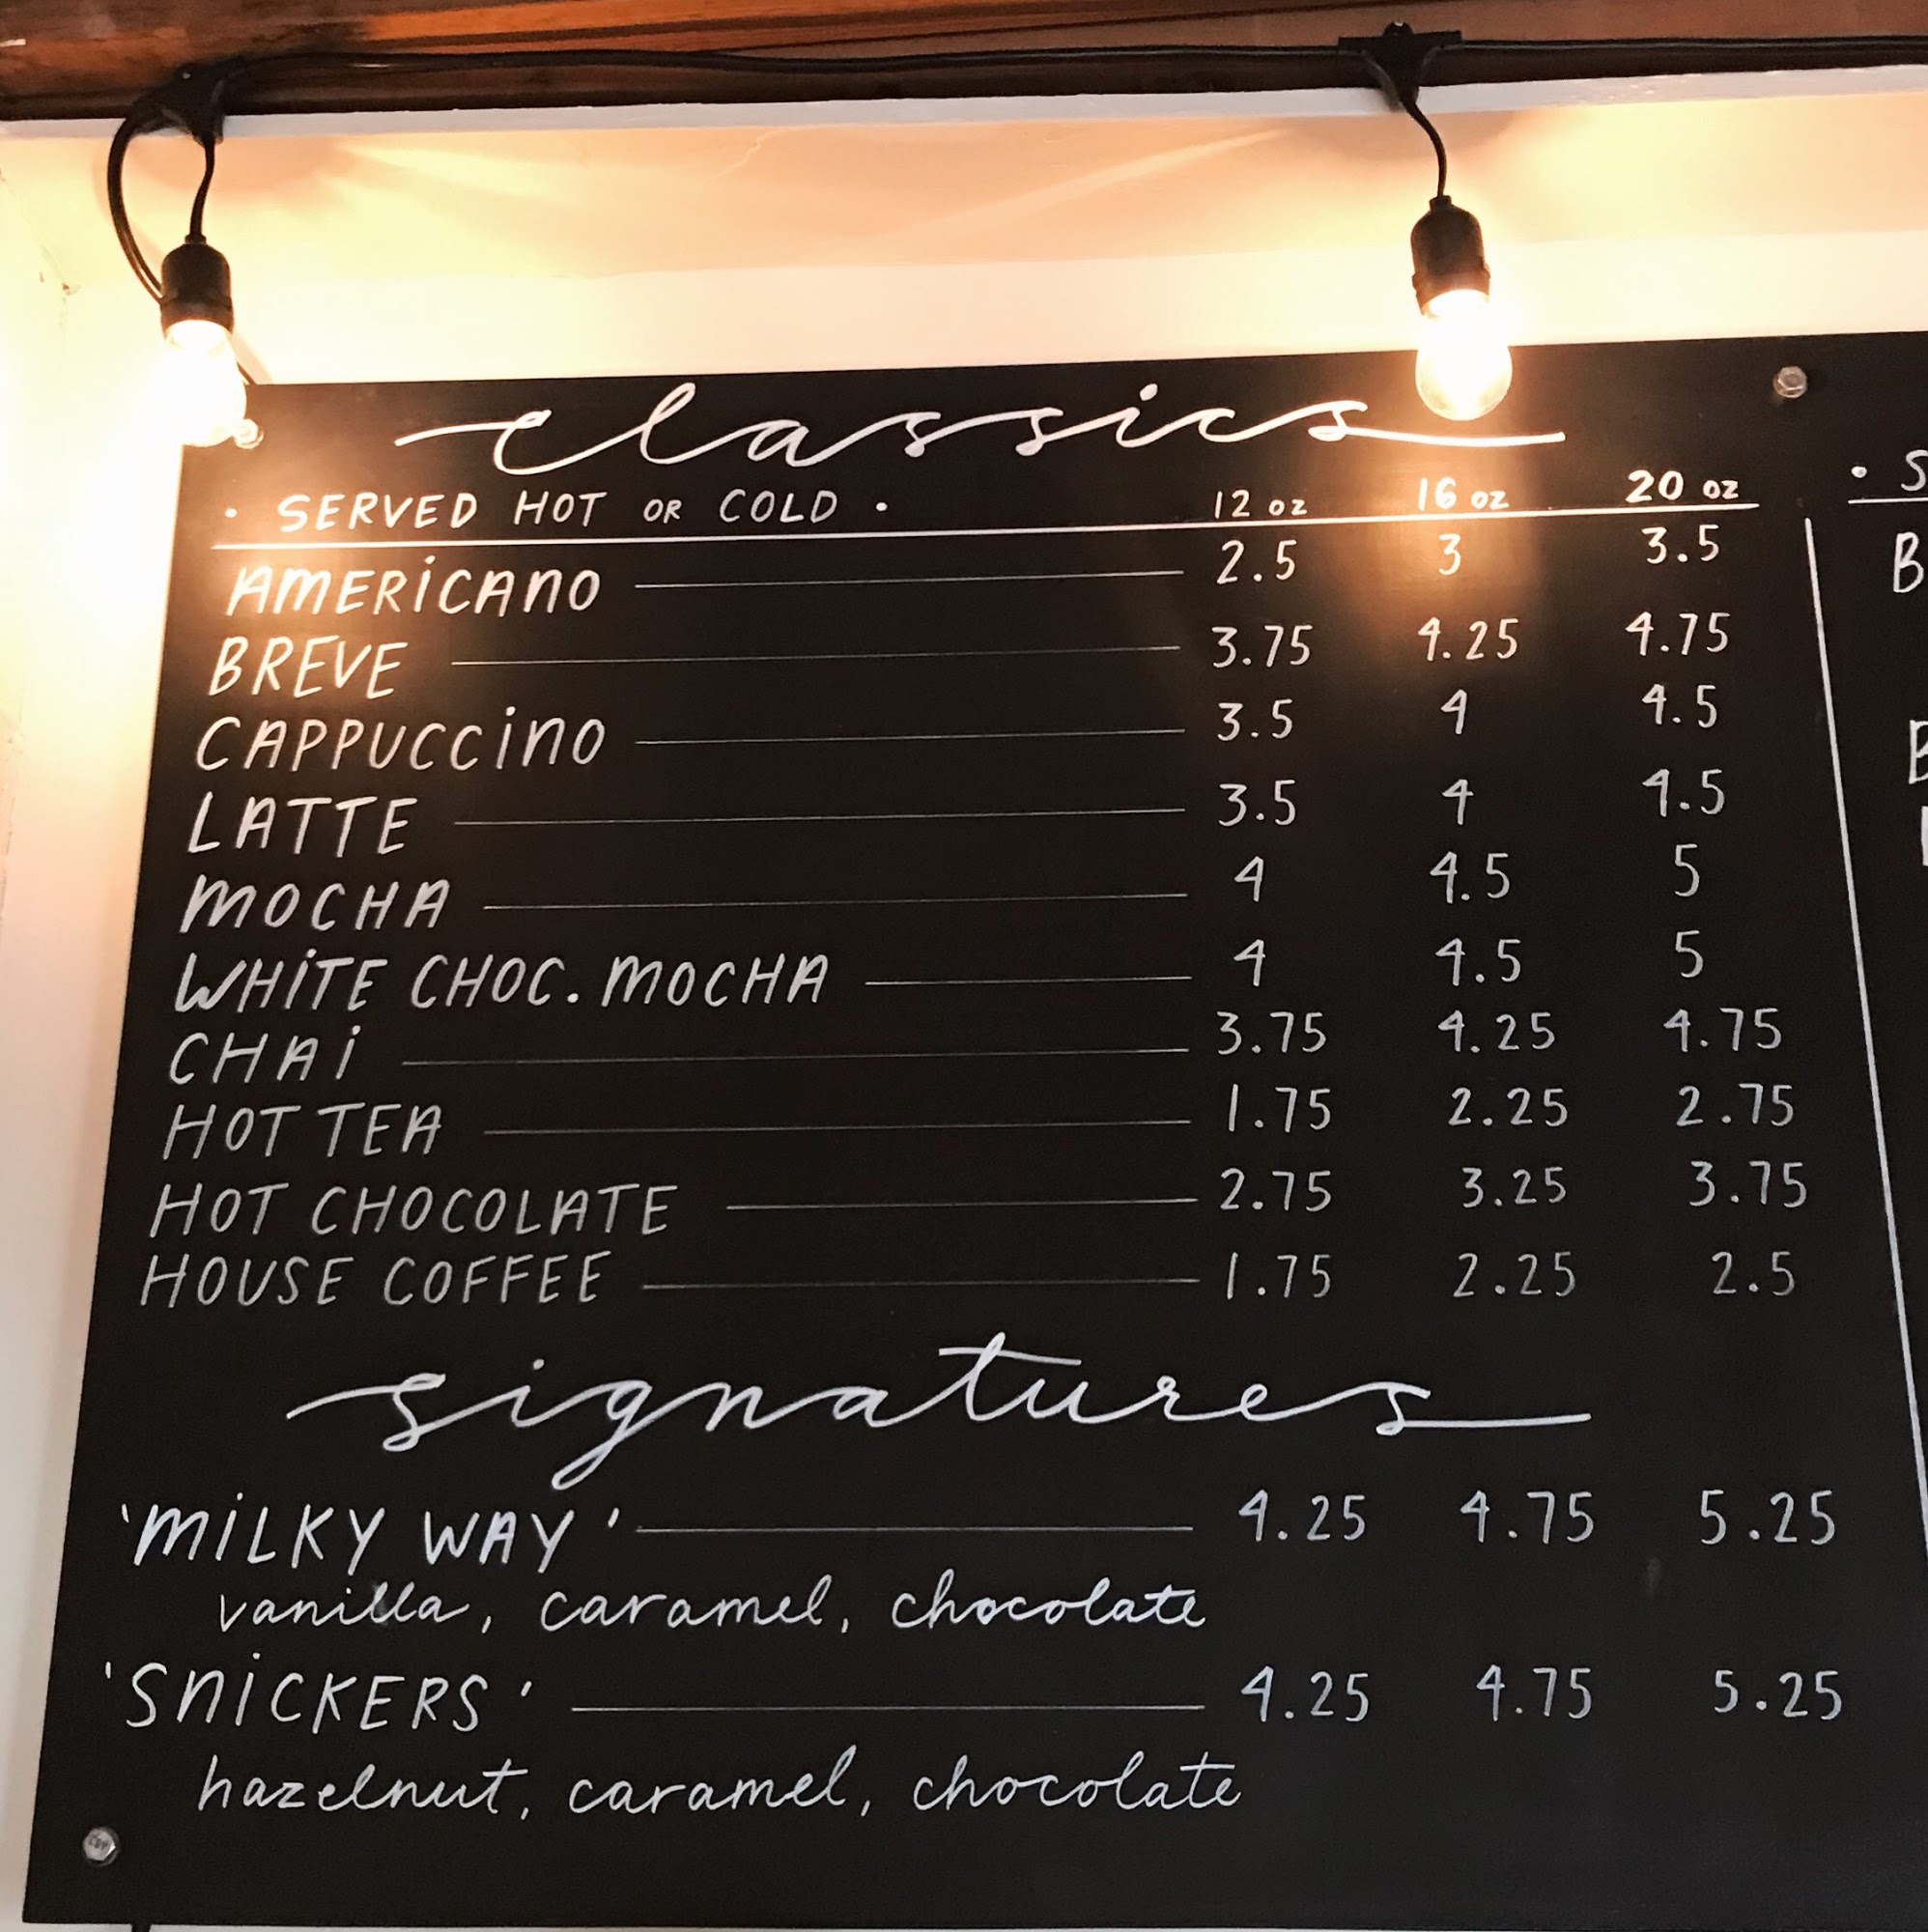 classics
• SERVED HOT OR COLD • 12 oz 16 oz 20 oz
AMERICANO 2.5 3 3.5
BREVE 3.75 4.25 4.75
CAPPUCCINO 3.5 4 4.5
LATTE 3.5 4 4.5
MOCHA 4 4.5 5
WHITE CHOC. MOCHA 4 4.5 5
CHAI 3.75 4.25 4.75
HOT TEA 1.75 2.25 2.75
HOT CHOCOLATE 2.75 3.25 3.75
HOUSE COFFEE 1.75 2.25 2.5
signatures
'MILKY WAY' 4.25 4.75 5.25
vanilla, caramel, chocolate
'SNICKERS' 4.25 4.75 5.25
hazelnut, caramel, chocolate